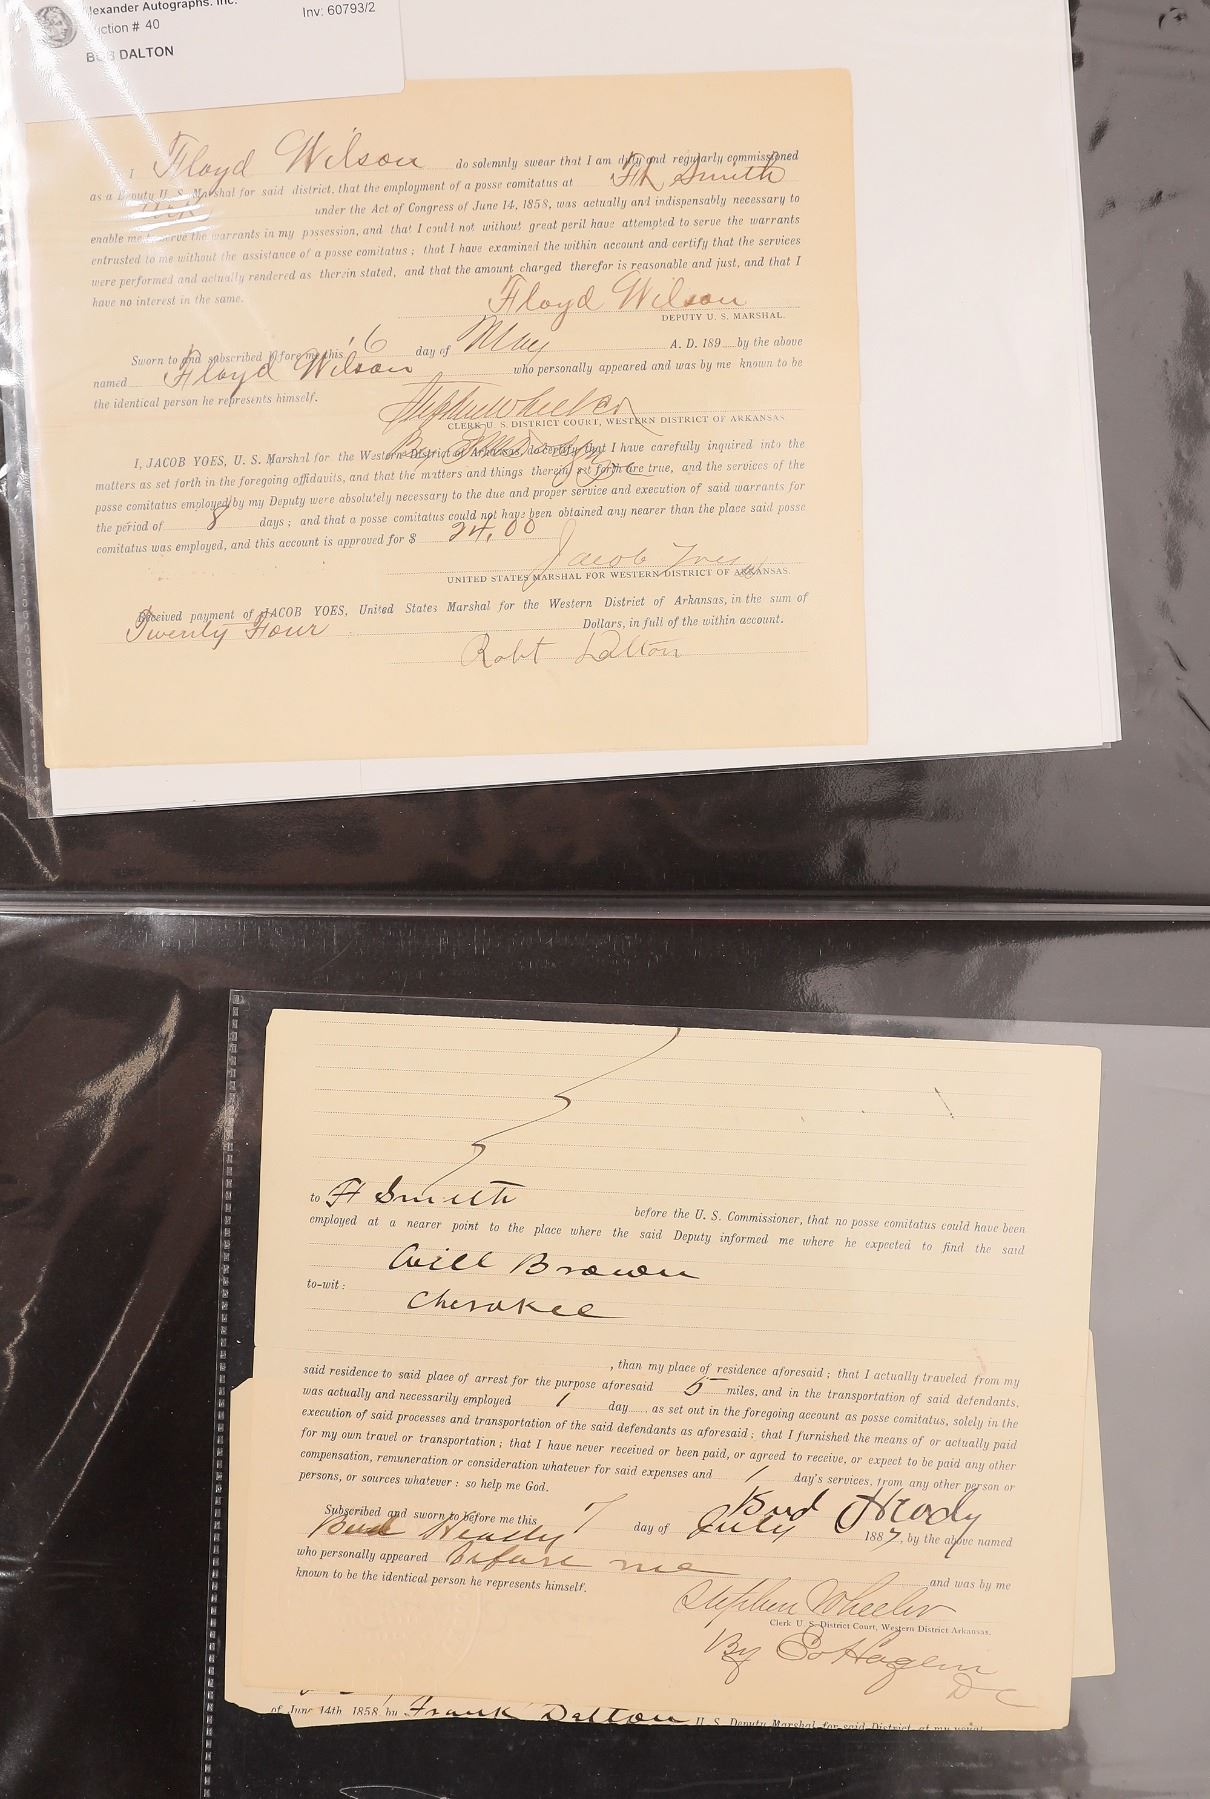 lexander Autographs. Inc.
uction # 40
Inv: 60793/2
BOB DALTON
I Floyd Wilson do solemnly swear that I am duly and regularly commissioned
as a Deputy U. S. Marshal for said district, that the employment of a posse comitatus at Ft Smith
Ark under the Act of Congress of June 14, 1858, was actually and indispensably necessary to
enable me to serve the warrants in my possession, and that I could not without great peril have attempted to serve the warrants
entrusted to me without the assistance of a posse comitatus; that I have examined the within account and certify that the services
were performed and actually rendered as therein stated, and that the amount charged therefor is reasonable and just, and that I
have no interest in the same.
Floyd Wilson
DEPUTY U. S. MARSHAL.
Sworn to and subscribed before me this 6 day of May A. D. 189 by the above
named Floyd Wilson who personally appeared and was by me known to be
the identical person he represents himself.
Stephen Wheeler
CLERK U. S. DISTRICT COURT, WESTERN DISTRICT OF ARKANSAS
By
I, JACOB YOES, U. S. Marshal for the Western District of Arkansas, do certify that I have carefully inquired into the
matters as set forth in the foregoing affidavits, and that the matters and things therein set forth are true, and the services of the
posse comitatus employed by my Deputy were absolutely necessary to the due and proper service and execution of said warrants for
the period of 8 days; and that a posse comitatus could not have been obtained any nearer than the place said posse
comitatus was employed, and this account is approved for $ 24.00
Jacob Yoes
UNITED STATES MARSHAL FOR WESTERN DISTRICT OF ARKANSAS.
Received payment of JACOB YOES, United States Marshal for the Western District of Arkansas, in the sum of
Twenty Four Dollars, in full of the within account.
Robt Dalton
to Ft Smith before the U. S. Commissioner, that no posse comitatus could have been
employed at a nearer point to the place where the said Deputy informed me where he expected to find the said
Will Brown
to-wit:
Cherokee
, than my place of residence aforesaid; that I actually traveled from my
said residence to said place of arrest for the purpose aforesaid 5 miles, and in the transportation of said defendants,
was actually and necessarily employed 1 day, as set out in the foregoing account as posse comitatus, solely in the
execution of said processes and transportation of the said defendants as aforesaid; that I furnished the means of or actually paid
for my own travel or transportation; that I have never received or been paid, or agreed to receive, or expect to be paid any other
compensation, remuneration or consideration whatever for said expenses and 1 day's services, from any other person or
persons, or sources whatever: so help me God.
Bud Heady
Subscribed and sworn to before me this 7 day of July 1887, by the above named
Bud Heady
who personally appeared before me and was by me
known to be the identical person he represents himself.
Stephen Wheeler
Clerk U. S. District Court, Western District Arkansas.
By Ed Hagen
DC
of June 14th 1858, by Frank Dalton U. S. Deputy Marshal for said District, at my usual